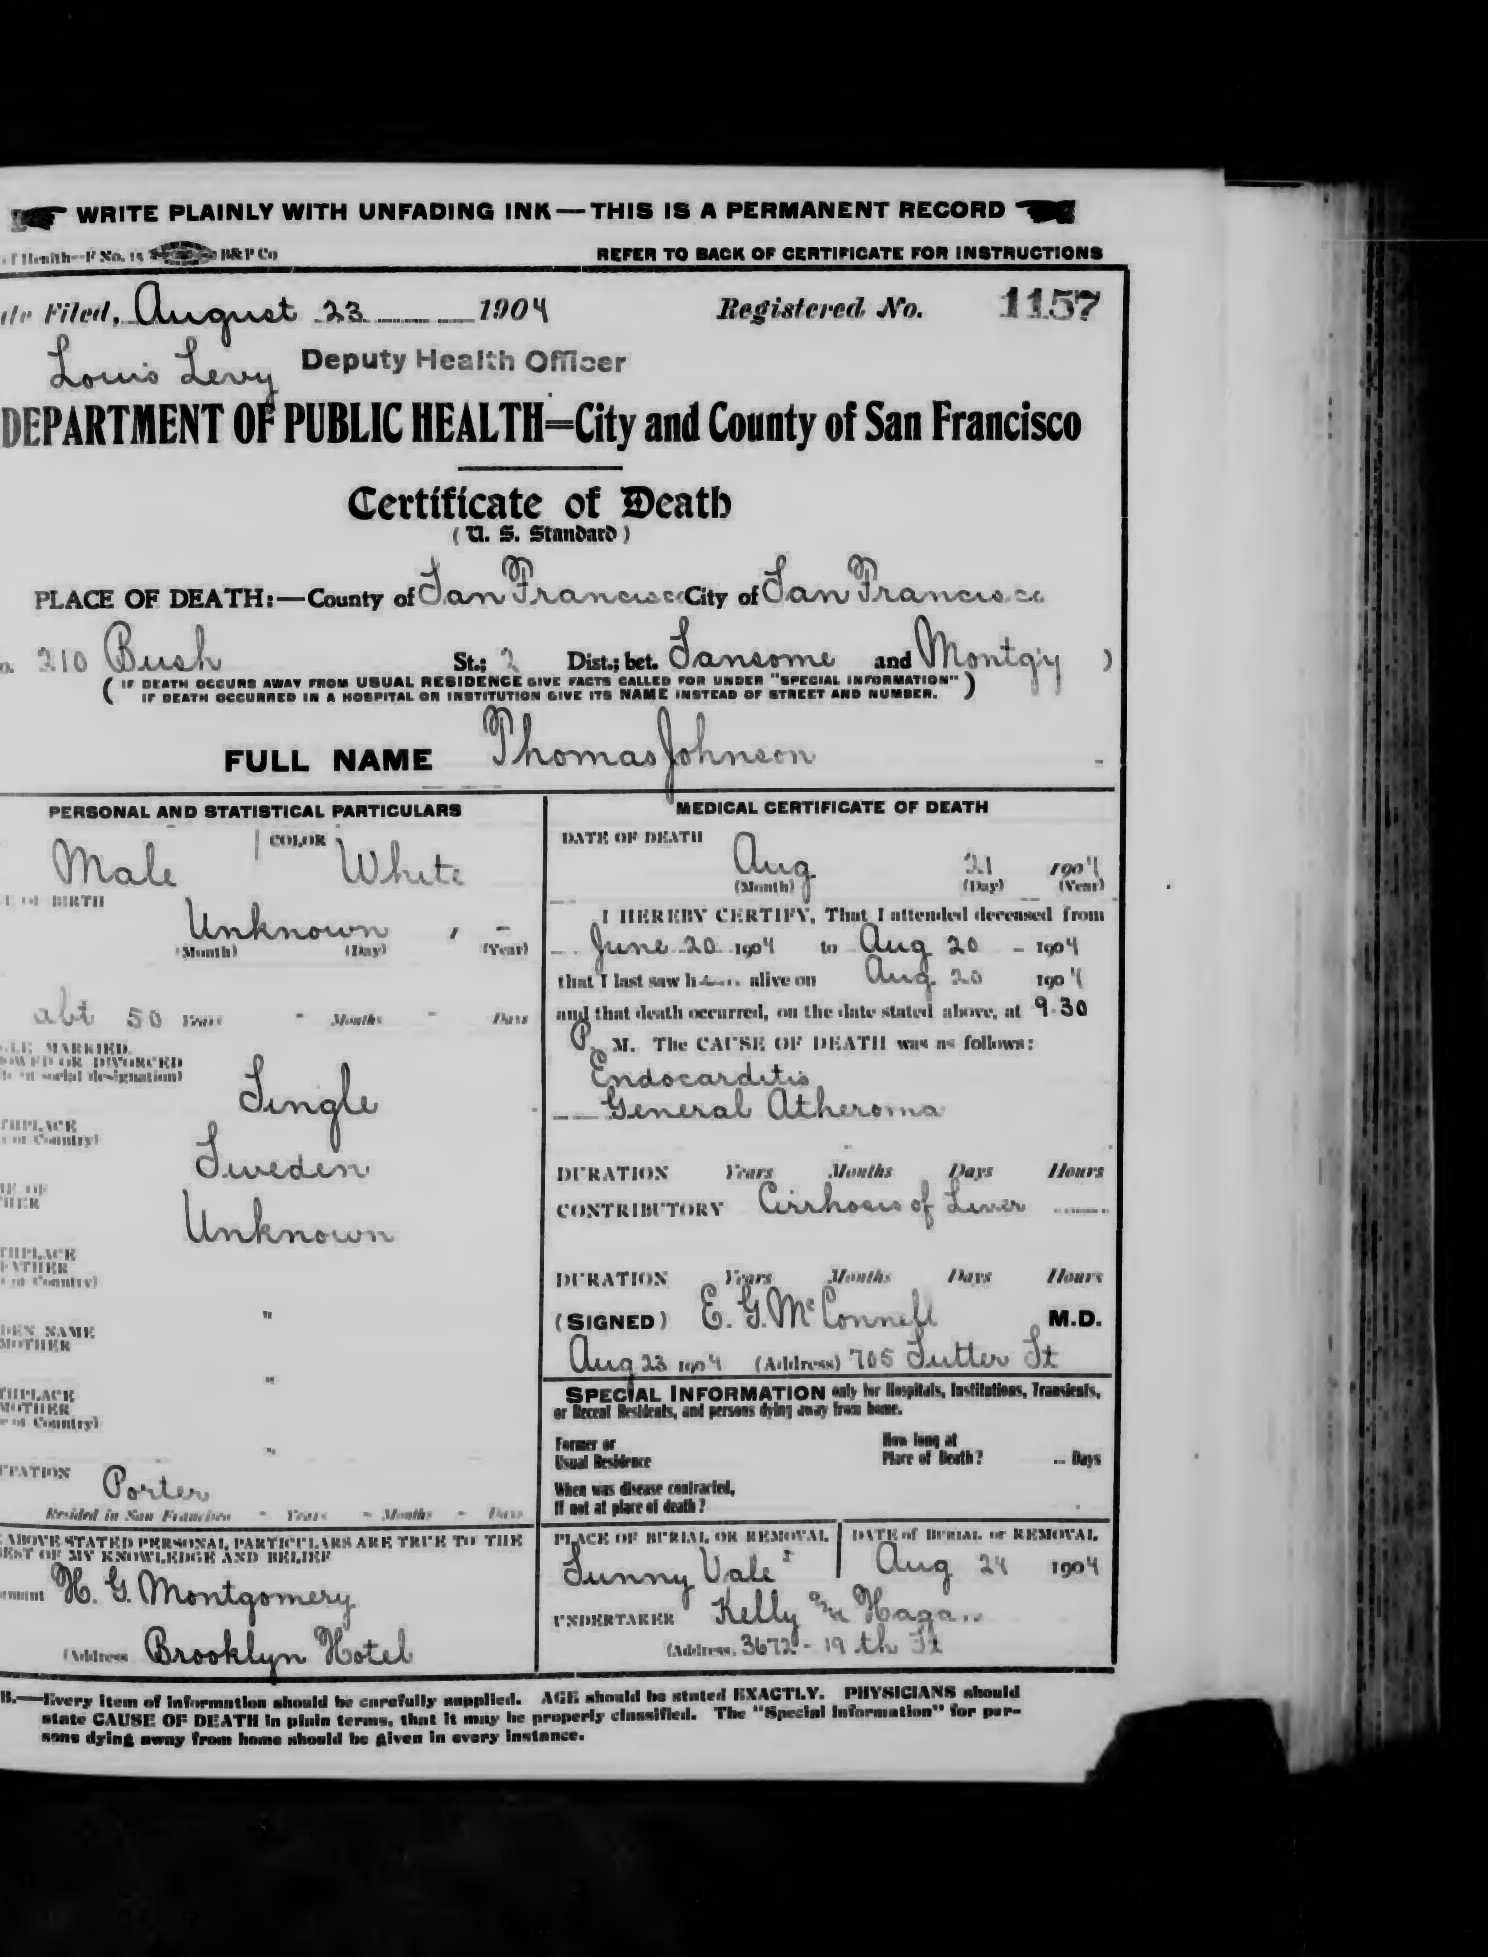 WRITE PLAINLY WITH UNFADING INK—THIS IS A PERMANENT RECORD
of Health—F No. 15 B&P Co REFER TO BACK OF CERTIFICATE FOR INSTRUCTIONS
Filed, August 23 1904 Registered No. 1157
Louis Levy Deputy Health Officer
DEPARTMENT OF PUBLIC HEALTH=City and County of San Francisco
Certificate of Death
(U. S. Standard)
PLACE OF DEATH:—County of San Francisco City of San Francisco
210 Bush St.; 2 Dist.; bet. Sansome and Montg'y )
(IF DEATH OCCURS AWAY FROM USUAL RESIDENCE GIVE FACTS CALLED FOR UNDER "SPECIAL INFORMATION"
IF DEATH OCCURRED IN A HOSPITAL OR INSTITUTION GIVE ITS NAME INSTEAD OF STREET AND NUMBER.)
FULL NAME Thomas Johnson
PERSONAL AND STATISTICAL PARTICULARS
COLOR
Male White
OF BIRTH
Unknown , -
(Month) (Day) (Year)
abt 50 Years - Months - Days
MARRIED,
OR DIVORCED
social designation)
Single
THPLACE
or Country)
Sweden
OF
HER
Unknown
THPLACE
FATHER
or Country)
"
DEN NAME
MOTHER
"
THPLACE
MOTHER
or Country)
"
PATION
Porter
Resided in San Francisco - Years - Months - Days
ABOVE STATED PERSONAL PARTICULARS ARE TRUE TO THE
BEST OF MY KNOWLEDGE AND BELIEF
H. G. Montgomery
(Address Brooklyn Hotel
MEDICAL CERTIFICATE OF DEATH
DATE OF DEATH
Aug 21 1904
(Month) (Day) (Year)
I HEREBY CERTIFY, That I attended deceased from
June 20 1904 to Aug 20 - 1904
that I last saw h alive on Aug. 20 1904
and that death occurred, on the date stated above, at 9.30
P. M. The CAUSE OF DEATH was as follows:
Endocarditis
General Atheroma
DURATION Years Months Days Hours
CONTRIBUTORY Cirrhosis of Liver
DURATION Years Months Days Hours
(SIGNED) E. G. McConnell M.D.
Aug 23 1904 (Address) 705 Sutter St
SPECIAL INFORMATION only for Hospitals, Institutions, Transients,
or Recent Residents, and persons dying away from home.
Former or
Usual Residence
How long at
Place of Death? Days
When was disease contracted,
If not at place of death?
PLACE OF BURIAL OR REMOVAL DATE of BURIAL or REMOVAL
Sunny Vale Aug 24 1904
UNDERTAKER Kelly and Hagan
(Address. 3672 - 19 th St
B.—Every item of information should be carefully supplied. AGE should be stated EXACTLY. PHYSICIANS should
state CAUSE OF DEATH in plain terms, that it may be properly classified. The "Special Information" for per-
sons dying away from home should be given in every instance.